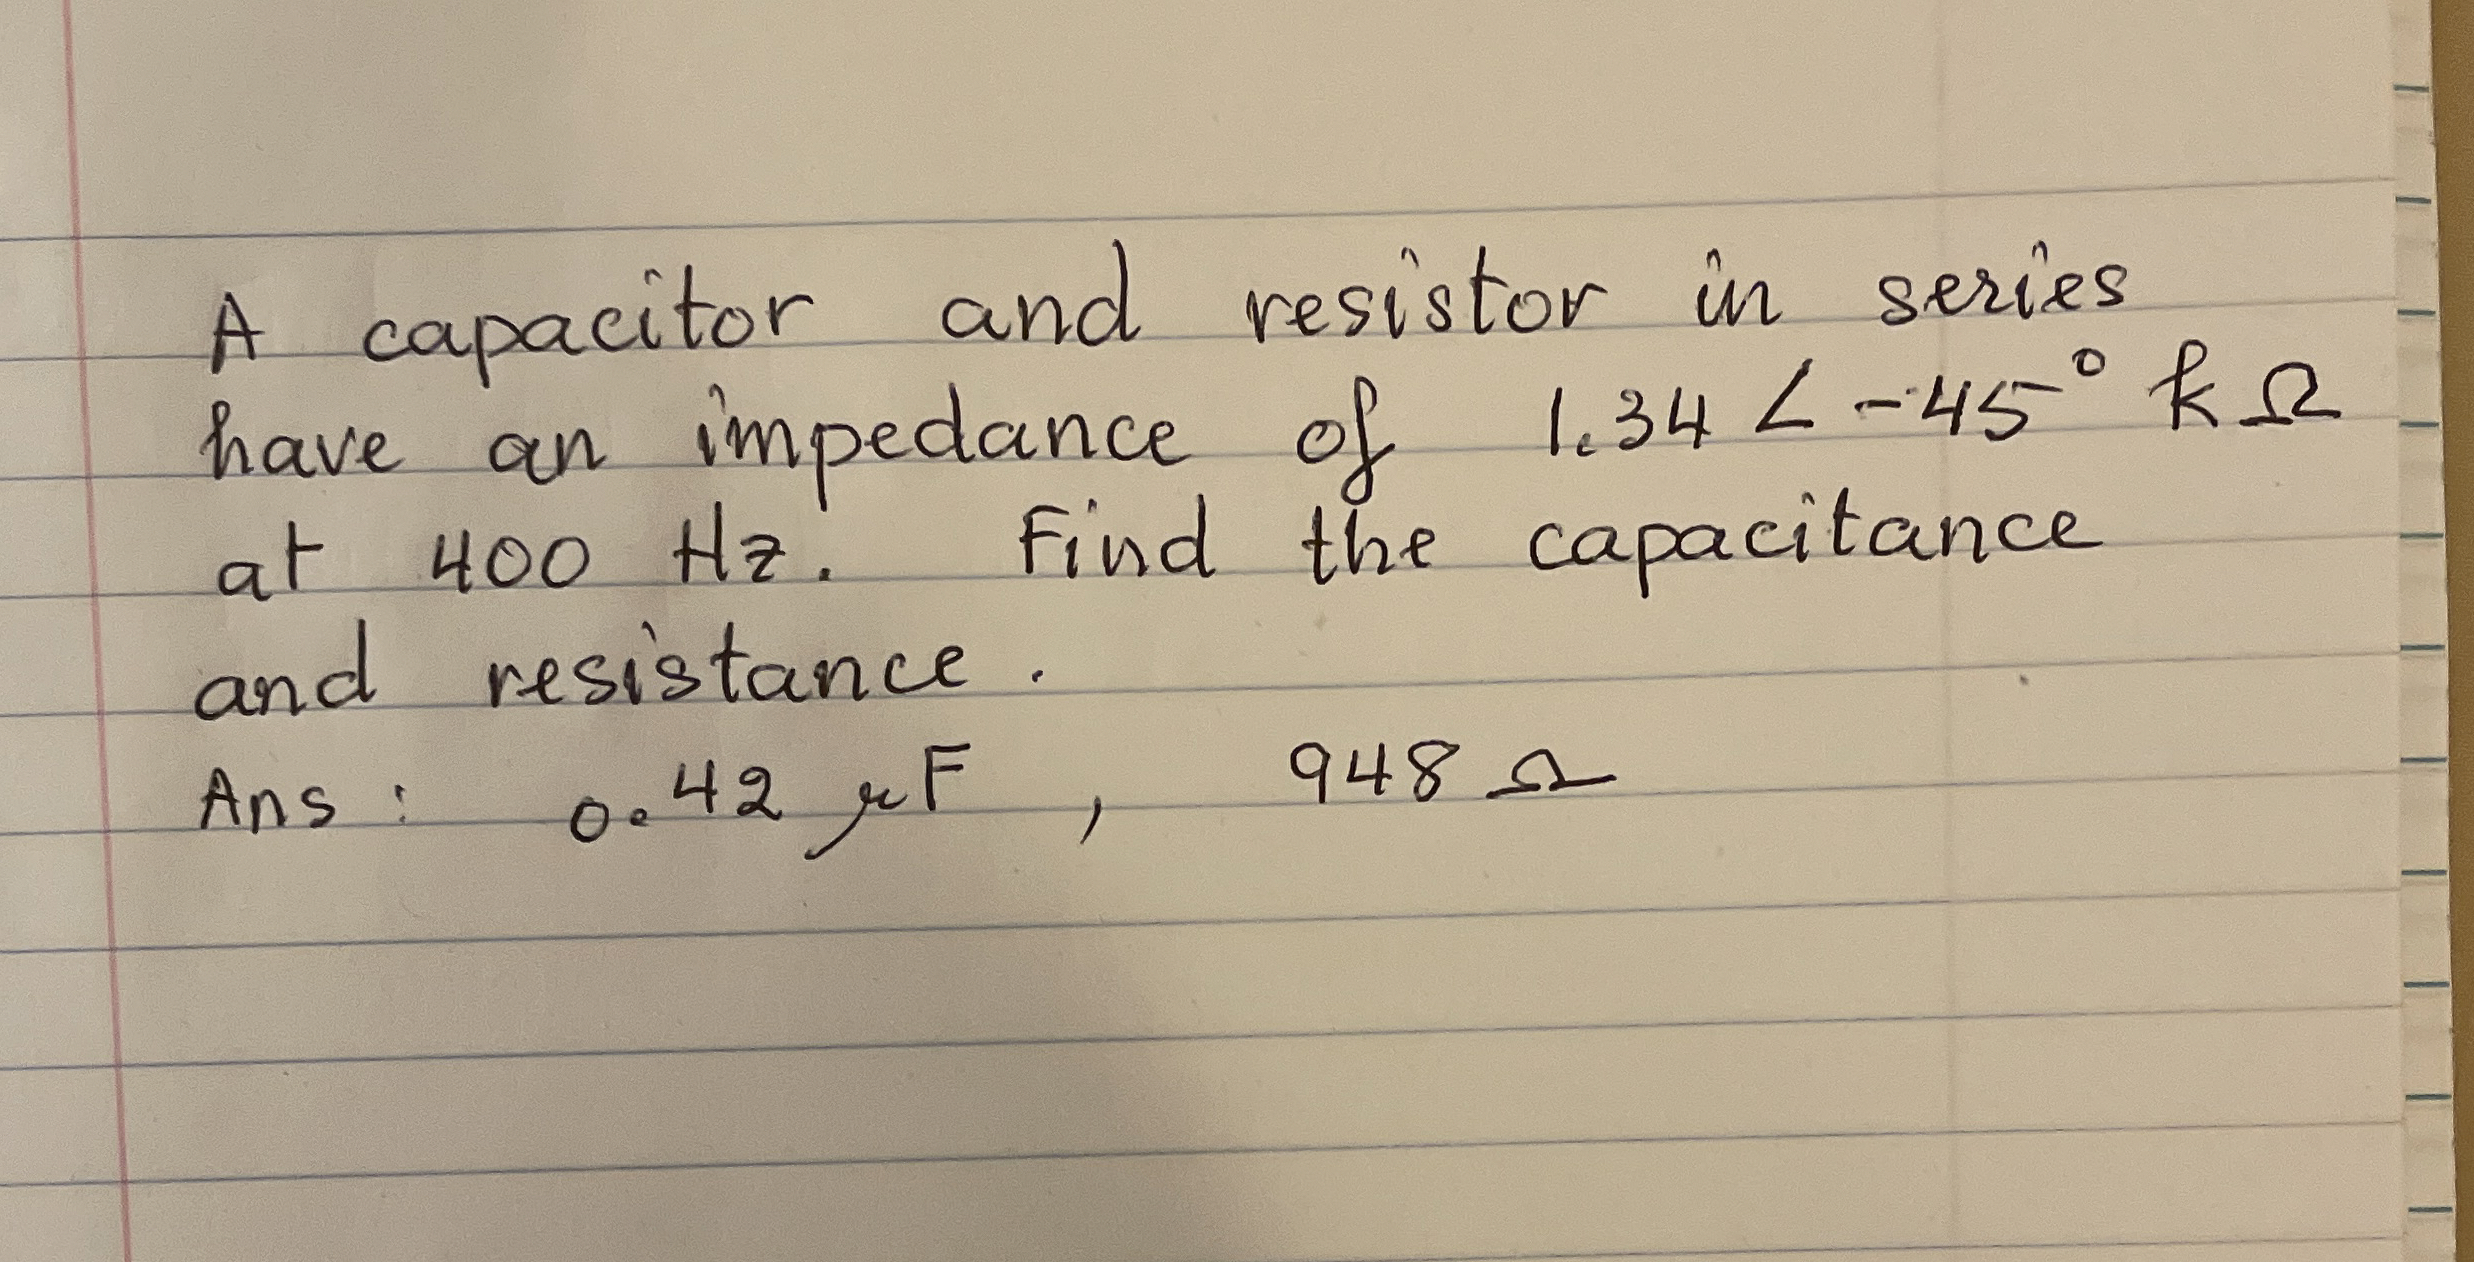 A capacitor and resistor in series
have an impedance of 1.34 ∠ -45° kΩ
at 400 Hz. Find the capacitance
and resistance.
Ans : 0.42 μF , 948 Ω